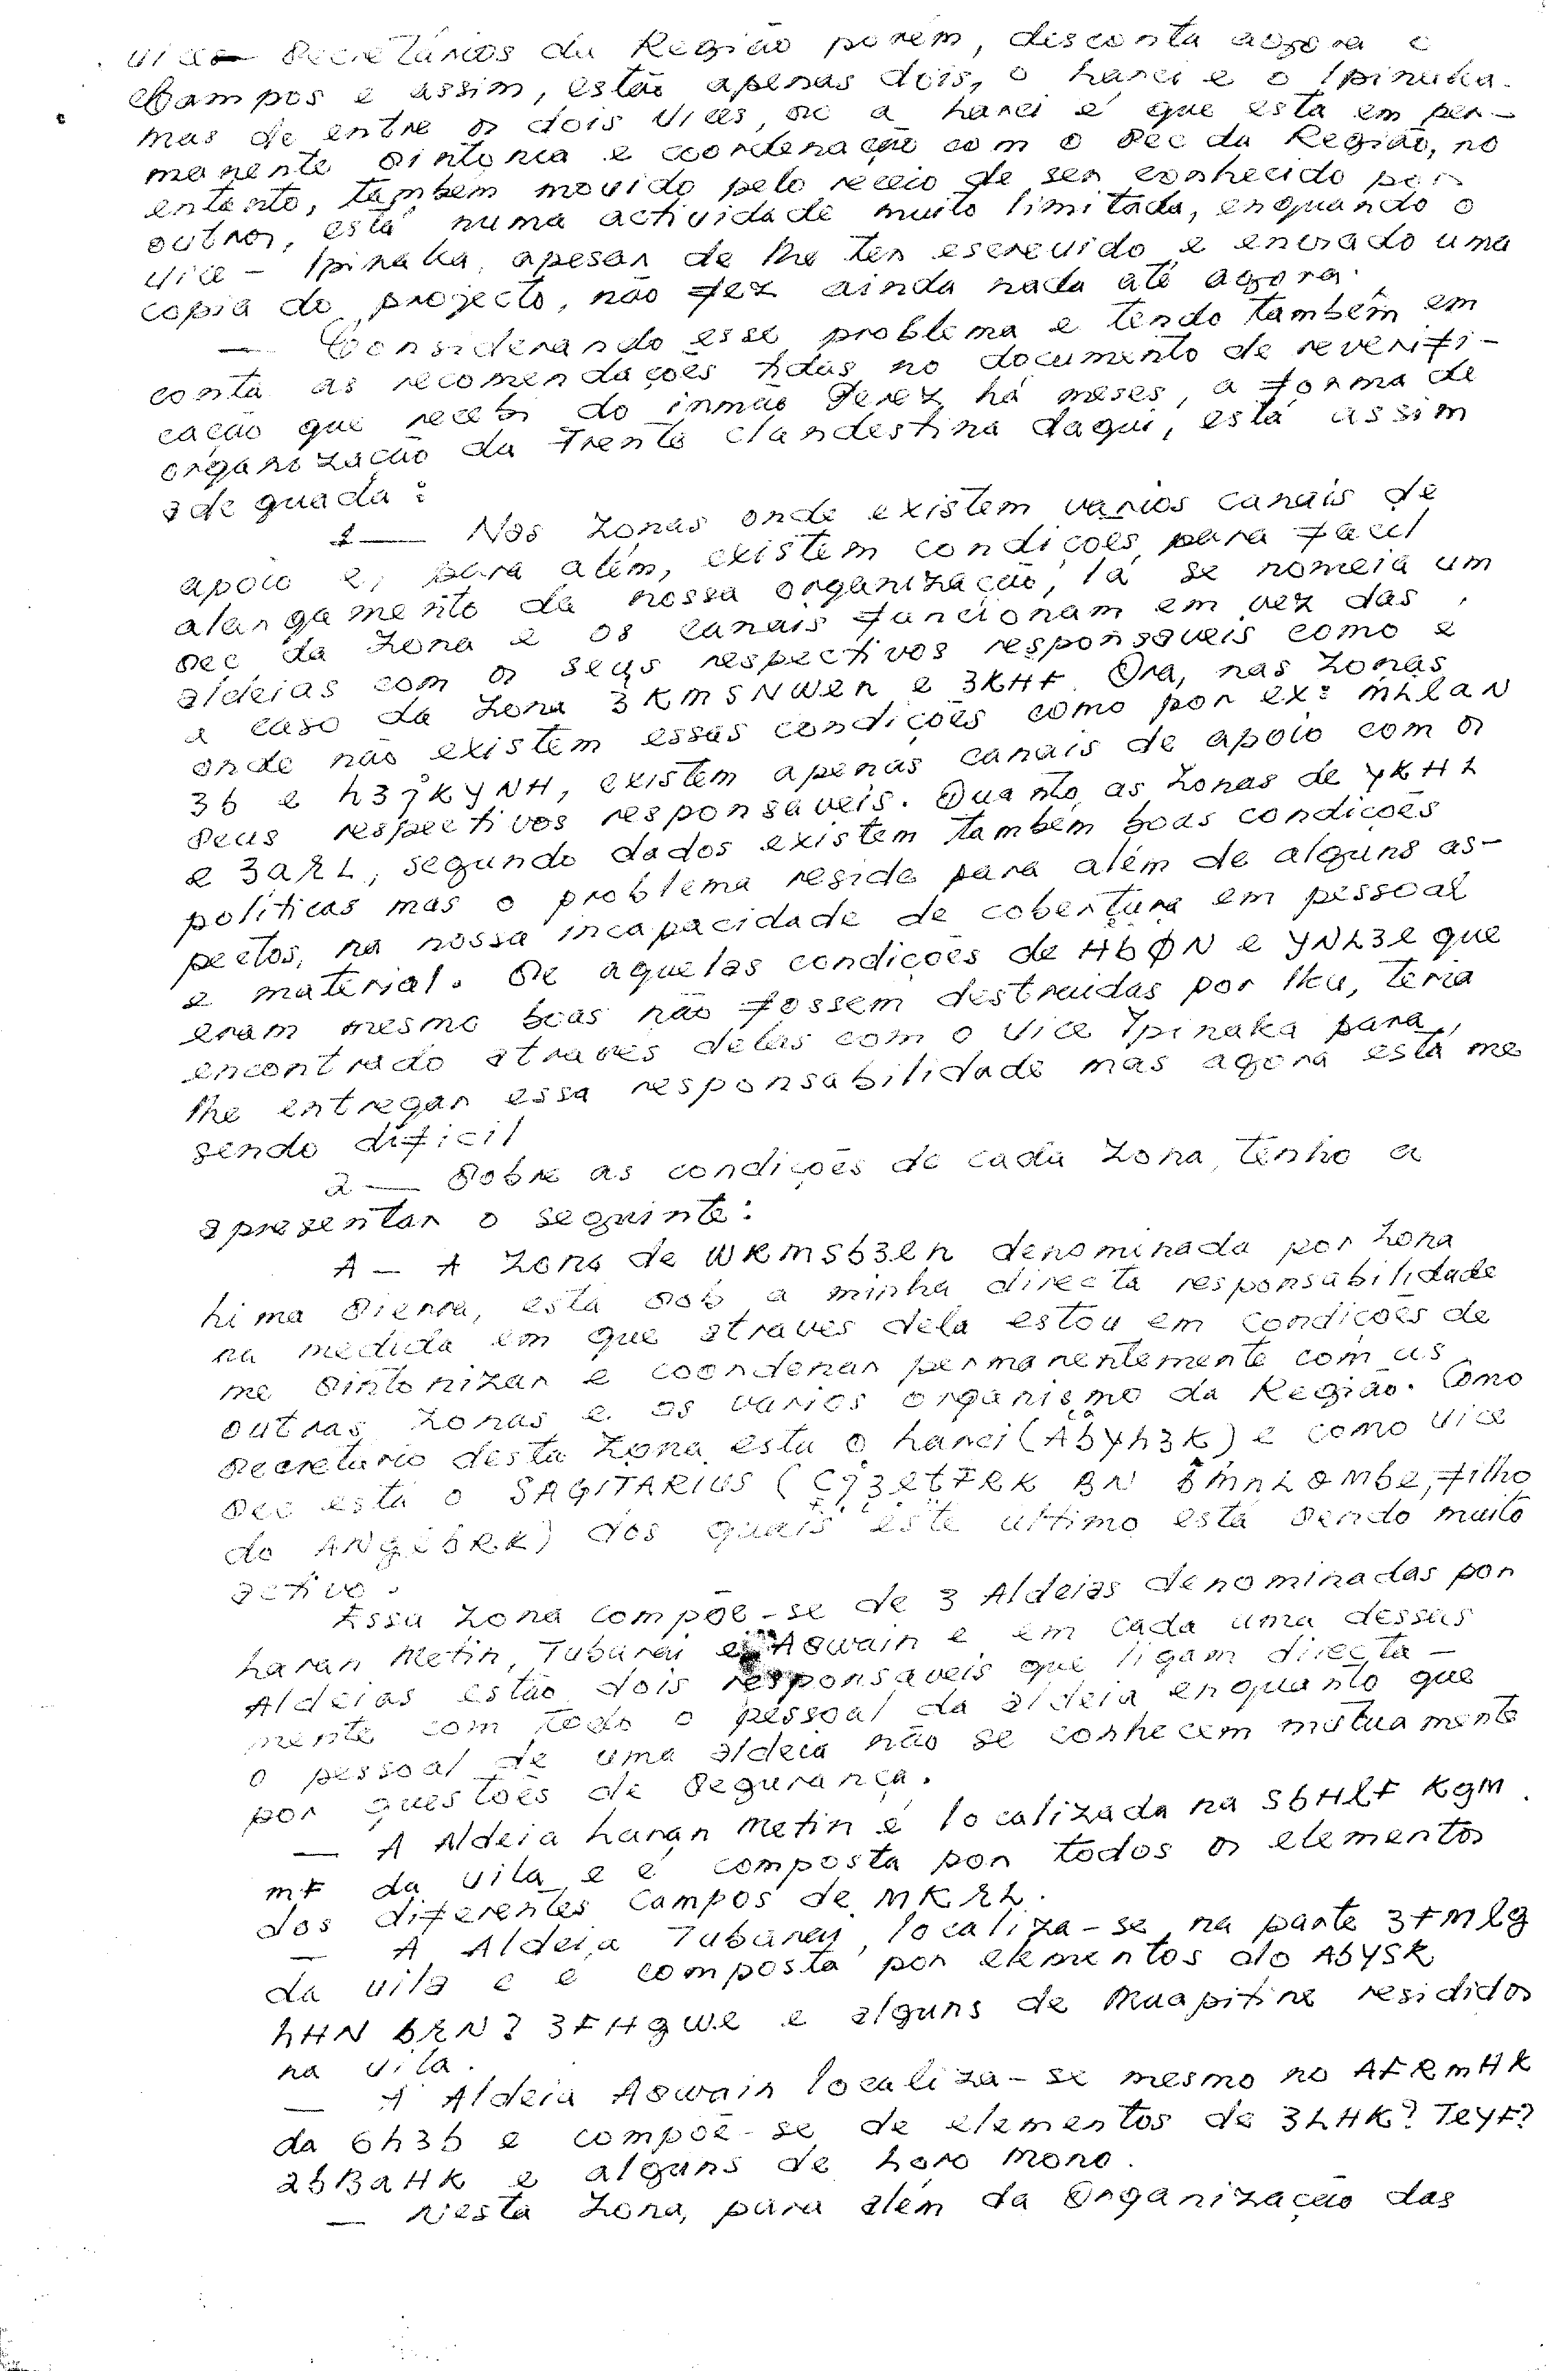 vice-Secretários da Região porém, desconta agora o
Campos e assim, estão apenas dois, o hanci e o Ipinaka.
mas de entre os dois vices, só a hanci é que esta em per-
manente sintonia e coordenação com o Sec da Região, no
entanto, também movido pelo receio de ser conhecido por
outros, está numa actividade muito limitada, enquando o
vice - Ipinaka, apesar de lhe ter escrevido e enviado uma
copia do projecto, não fez ainda nada até agora.
— Considerando esse problema e tendo também em
conta as recomendações tidas no documento de reverifi-
cação que recebi do inmão Perez há meses, a forma de
organização da Frente clandestina daqui, está assim
adeguada:
1— Nas zonas onde existem varios canais de
apoio e, para além, existem condições para facil
alargamento da nossa organização, lá se nomeia um
Sec da zona e os canais funcionam em vez das
aldeias com os seus respectivos responsaveis como e
e caso da zona 3KMSNWER e 3KHF. Ora, nas zonas
onde não existem essas condições como por ex: MLlaN
36 e h3jKyNH, existem apenas canais de apoio com os
seus respectivos responsaveis. Quanto as zonas de YKHL
e 3aRL, segundo dados existem também boas condições
politicas mas o problema reside para além de alguns as-
pectos, na nossa incapacidade de cobertura em pessoal
e material. Se aquelas condições de HbØN e YNL3l que
eram mesmo boas não fossem destruidas por Iku, teria
encontrado atraves delas com o vice Ipinaka para
lhe entregar essa responsabilidade mas agora está me
sendo dificil
2— Sobre as condições de cada zona, tenho a
apresentar o seguinte:
A — A zona de WRMSb3en denominada por zona
hima Sierra, está sob a minha directa responsabilidade
na medida em que atraves dela estou em condições de
me sintonizar e coordenar permanentemente com as
outras zonas e os varios organismo da Região. Como
Secretario desta zona esta o hanci (Abyh3K) e como vice
Sec está o SAGITARIUS ( filho
do ) dos quais este ultimo está sendo muito
activo.
Essa zona compõe-se de 3 Aldeias denominadas por
haran Metin, Tubarai e Aswain e em cada uma dessas
Aldeias estão dois responsaveis que ligam directa-
mente com todo o pessoal da aldeia enquanto que
o pessoal de uma aldeia não se conhecem mutuamente
por questões de segurança.
— A Aldeia haran Metin é localizada na SbHlF KgM
mF da vila e é composta por todos os elementos
dos diferentes campos de MKRL.
— A Aldeia Tubarai localiza-se na parte 3FMlg
da vila e é composta por elementos do AbYSK
hHN bRN? 3FHgWe e alguns de Muapitine residios
na vila.
— A Aldeia Aswain localiza-se mesmo no AFRMHK
da 6h3b e compõe-se de elementos de 3LHK? TeYF?
abBaHK e alguns de horo Mono.
— Nesta zona, para além da Organização das